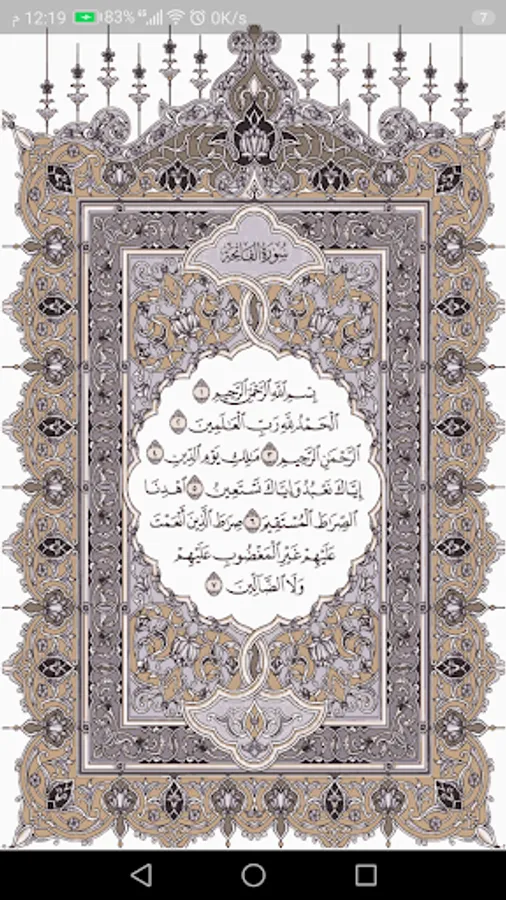 م 12:19 83% 4G 0K/s 7
سُورَةُ الفَاتِحَةِ
بِسْمِ اللَّهِ الرَّحْمَٰنِ الرَّحِيمِ ١
الْحَمْدُ لِلَّهِ رَبِّ الْعَالَمِينَ ٢
الرَّحْمَٰنِ الرَّحِيمِ ٣ مَالِكِ يَوْمِ الدِّينِ ٤
إِيَّاكَ نَعْبُدُ وَإِيَّاكَ نَسْتَعِينُ ٥ اهْدِنَا
الصِّرَاطَ الْمُسْتَقِيمَ ٦ صِرَاطَ الَّذِينَ أَنْعَمْتَ
عَلَيْهِمْ غَيْرِ الْمَغْضُوبِ عَلَيْهِمْ
وَلَا الضَّالِّينَ ٧